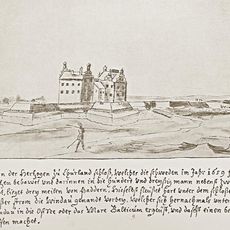 en der Hertzogen zu Churland schloß, welcher die schweden im Jahr 1659
chen bekawet und darinnen in die hundert und dreyßig mann neben
st, lieget drey meilen von Haddern. Hieselbst fleußet hart unter dem schloß
ßer strom die Windau genandt vorbey. Welcher sich hernachmals unter
dau in die Ostsee oder das Mare Balticum ergeust, und daselbst einen
fen machet.